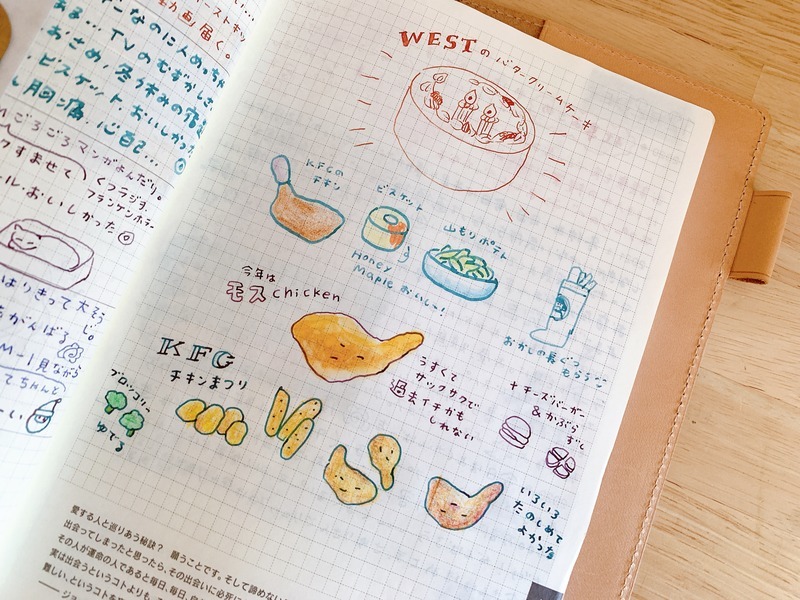 動画届く。
こんなのにんめっち
ある… TVのむずかしさ
おさめ! 冬休みの宿
ビスケットおいしかっ
胸痛、心配…
ごろごろマンガよんだり。
すませて
くつラジオ、
フランケンホラー
ル・おいしかった
はりきって大そう
じ。
がんばる
M-1見ながら
てちゃんと
WESTのバタークリームケーキ
KFCの
チキン
ビスケット
Honey
Maple おいしー!
山もりポテト
おかしの長ぐつ
もらう
今年は
モスchicken
うすくて
サックサクで
過去イチかも
しれない
KFC
チキンまつり
ブロッコリー
ゆでる
+チーズバーガー
&かぶら
ずし
いろいろ
たのしめて
よかった
愛する人と巡りあう秘訣? 願うことです。そして諦めない
出会ってしまったと思ったら、その出会いに必死に
その人が運命の人であると毎日、毎日、
実は出会うというコトよりも、
難しい、というコトを
——ジョ